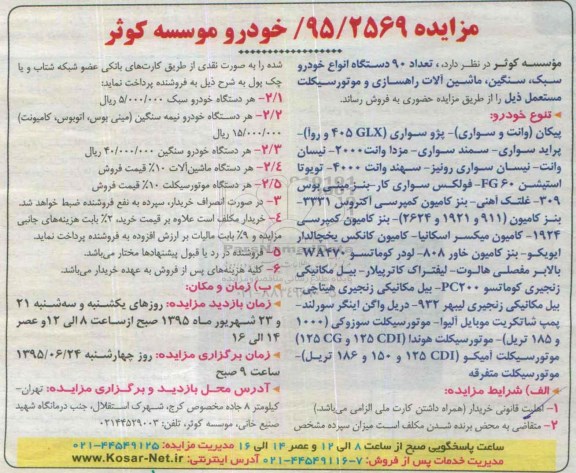 مزایده ۹۵/۲۵۶۹/ خودرو موسسه کوثر
مؤسسه کوثر در نظر دارد، تعداد ۹۰ دستگاه انواع خودرو
سبک، سنگین، ماشین آلات راهسازی و موتورسیکلت
مستعمل ذیل را از طریق مزایده حضوری به فروش رساند.
تنوع خودرو:
پیکان (وانت و سواری)- پژو سواری (GLX ۴۰۵ و روا)-
پراید سواری- سمند سواری- مزدا وانت۲۰۰۰- نیسان
وانت- نیسان سواری رونیز- سهند وانت ۴۰۰۰- تویوتا
استیشن FG ۶۰- فولکس سواری کار- بنز مینی بوس
۳۰۹- غلتک آهنی- بنز کامیون کمپرسی آکتروس ۳۳۳۱-
بنز کامیون (۹۱۱ و ۱۹۲۱ و ۲۶۲۴)- بنز کامیون کمپرسی
۱۹۲۴- کامیون میکسر اسکانیا- کامیون کانکس یخچالدار
ایویکو- بنز کامیون خاور ۸۰۸- لودر کوماتسو W۸۲۷۰-
بالابر مفصلی هالوت- لیفتراک کاترپیلار- بیل مکانیکی
زنجیری کوماتسو PC۲۰۰- بیل مکانیکی زنجیری هیتاچی-
بیل مکانیکی زنجیری لیبهر ۹۳۲- دریل واگن اینگر سورلند-
پمپ شاتکریت موبایل آلیوا- موتورسیکلت سوزوکی (۱۰۰۰
و ۱۸۵ تریل)- موتورسیکلت هوندا (CDI ۱۲۵ و CG ۱۲۵)
موتورسیکلت آمیکو (CDI ۱۲۵ و ۱۵۰ و ۱۸۶ تریل)-
موتورسیکلت متفرقه
الف) شرایط مزایده:
۱- اهلیت قانونی خریدار (همراه داشتن کارت ملی الزامی می‌باشد.)
۲- متقاضی به محض برنده شدن مکلف است میزان سپرده مشخص
شده را به صورت نقدی از طریق کارت‌های بانکی عضو شبکه شتاب و یا
چک پول به شرح ذیل به فروشنده پرداخت نماید:
۲/۱- هر دستگاه خودرو سبک ۵/۰۰۰/۰۰۰ ریال
۲/۲- هر دستگاه خودرو نیمه سنگین (مینی بوس، اتوبوس، کامیونت)
۱۵/۰۰۰/۰۰۰ ریال
۲/۳- هر دستگاه خودرو سنگین ۴۰/۰۰۰/۰۰۰ ریال
۲/۴- هر دستگاه ماشین‌آلات ۱۰٪ قیمت فروش
۲/۵- هر دستگاه موتورسیکلت ۱۰٪ قیمت فروش
۳- در صورت انصراف خریدار، سپرده به نفع فروشنده ضبط خواهد شد.
۴- خریدار مکلف است علاوه بر قیمت خرید، ۲٪ بابت هزینه‌های جانبی
مزایده و ۹٪ بابت مالیات بر ارزش افزوده به فروشنده پرداخت نماید.
۵- فروشنده در رد یا قبول پیشنهادها مختار می‌باشد.
۶- کلیه هزینه‌های پس از فروش به عهده خریدار می‌باشد.
ب) زمان و مکان:
زمان بازدید مزایده: روزهای یکشنبه و سه‌شنبه ۲۱
و ۲۳ شهریور ماه ۱۳۹۵ صبح ازساعت ۸ الی ۱۲و عصر
۱۴ الی ۱۶
زمان برگزاری مزایده: روز چهارشنبه ۱۳۹۵/۰۶/۲۴
ساعت ۹ صبح
آدرس محل بازدید و برگزاری مزایده: تهران-
کیلومتر ۸ جاده مخصوص کرج، شهرک استقلال، جنب درمانگاه شهید
صنیع خانی، موسسه کوثر، تلفن: ۰۲۱۴۴۵۲۹۰۰۳
ساعت پاسخگویی صبح از ساعت ۸ الی ۱۲ و عصر ۱۴ الی ۱۶ مدیریت مزایده: ۴۴۵۴۹۱۲۵-۰۲۱
مدیریت خدمات پس از فروش: ۷-۴۴۵۴۹۱۱۶-۰۲۱ آدرس اینترنتی: www.Kosar-Net.ir